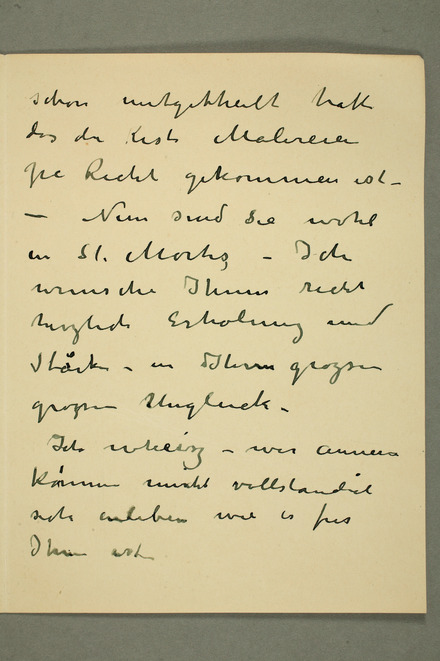 schon mitgetheilt hatte
das die Kiste Malereien
gekommen ist –
– Nun sind Sie wohl
in St. Moritz – Ich
wünsche Ihnen recht
herzlich Erholung und
Stärke – in Ihrem grozsen
grozsen Unglück –
Ich wheisz – wir
können nicht vollständich
sich einleben wie es
Ihnen ist